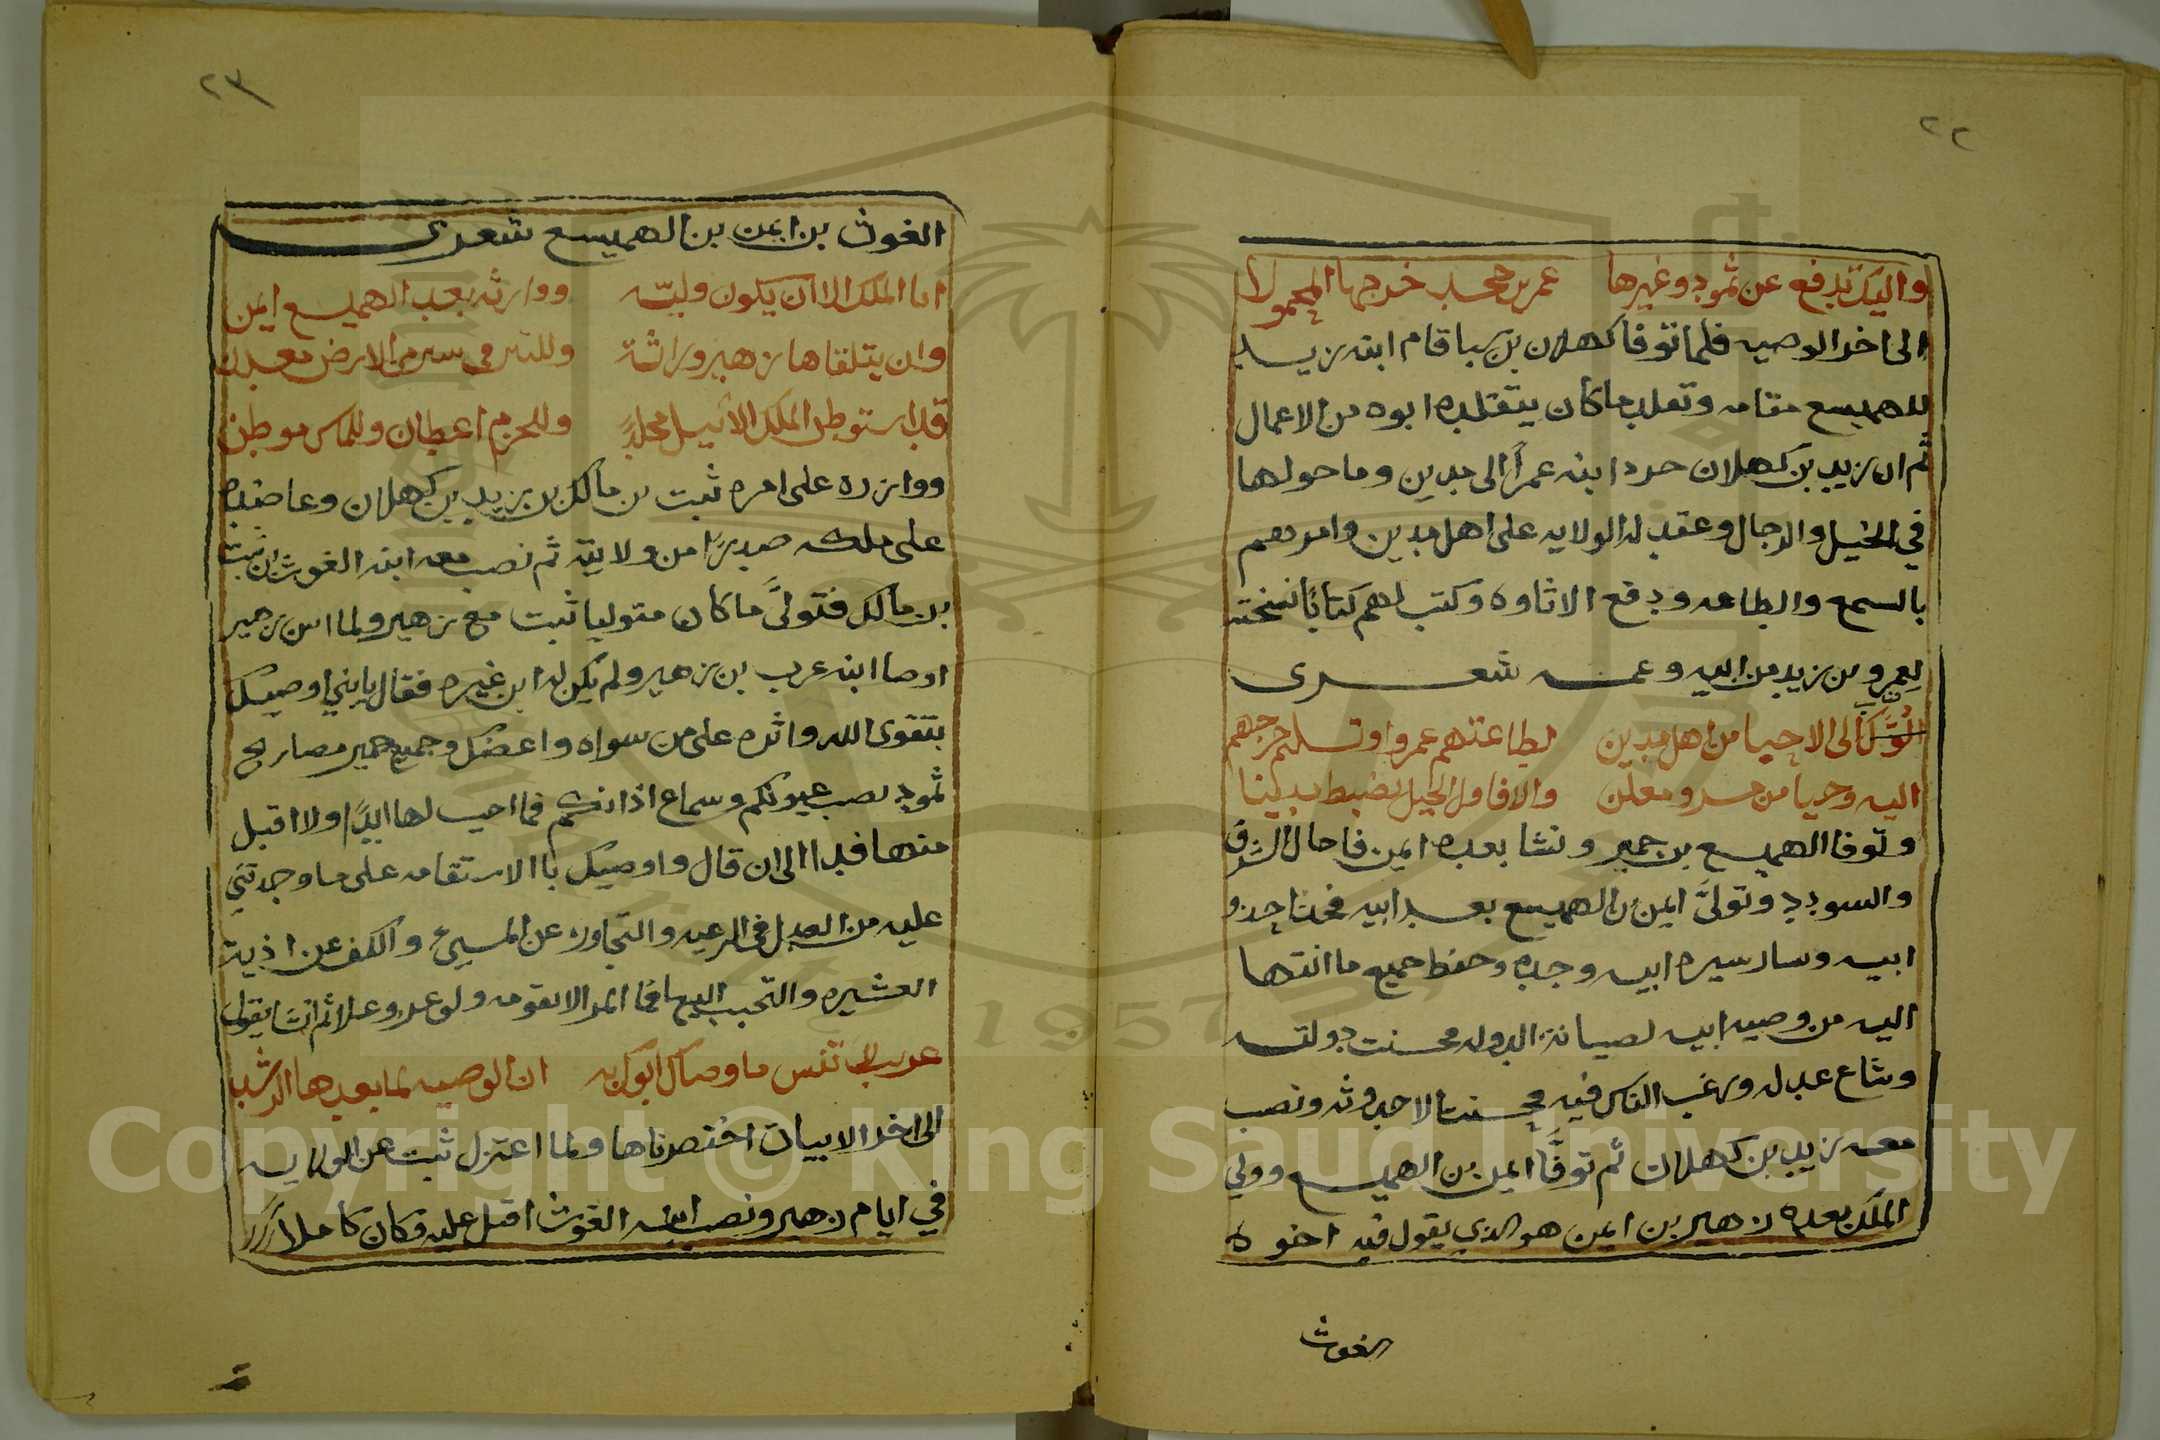 ٢٢
واليك تدفع عن ثمود وغيرها عمر بن جحد خرجها المحمولا
الى اخر الوصيه فلما توفا كهلان بن سبا قام ابنه زيد
للهميسع مقامه وتقلد ما كان يتقلده ابوه من الاعمال
ثم ان زيد بن كهلان جرد ابنه عمراً الى مدين وما حولها
في الخيل والرجال وعقد له الولايه على اهل مدين وامرهم
بالسمع والطاعه ودفع الاتاوه وكتب لهم كتاباً نسخته
لعمرو بن زيد من ابيه وعمه شعرى
كتاب
الى الاحيا من اهل مدين لطاعتهم عمرو وتسليم خرجهم
اليه وحيا من ومعلن والافاول الخيل تضبط مدينا
وتوفا الهميسع بن حمير ونشا بعده ايمن فاحال الشرف
والسودد وتولىَّ ايمن بن الهميسع بعد ابيه فحذا حذو
ابيه وسار سيره ابيه وجده وحفظ جميع ما انتها
اليه من وصيه ابيه لصيانة الدوله فحسنت دولته
وشاع عدله ورغب الناس فيه فحسنت الاحدوثه ونصب
معه زيد بن كهلان ثم توفَّا ايمن بن الهميسع وولي
الملك بعده زهير بن ايمن هو الذي يقول فيه اخوه
الغوث
٢٣
الغوث بن ايمن بن الهميسع شعرى
اما الملك الا ان يكون وليّه ووارثه بعد الهميسع ايمن
وان يتلقاها زهير وراثة وللتبر فى سر من الارض معدن
قد استوطن الملك الاثيل محلهً وللحزم اعطان وللملك موطن
ووازره على امره ثبت بن مالك بن زيد بن كهلان وعاضده
على ملكه صدراً من ولايته ثم نصب معه ابنه الغوث بن ثبت
بن مالك فتولىَّ ما كان متوليا ثبت مع زهير ولما اسن زهير
اوصا ابنه عرب بن زهير ولم يكن له ابن غيره فقال يابني اوصيك
بتقوى الله واثره على من سواه واعضك وجميع حمير مصارع
ثمود نصب عيونكم وسماع اذانكم فما احب لها ابدًا ولا اقبل
منها فدا الى ان قال واوصيك باالاستقامه على ما وجدتني
عليه من العدل فى الرعيه والتجاوز عن المسيء والكف عن اذية
العشيره والتحبب اليها فما المر الا بقومه ولو عز وعلا ثم انشا يقول
عرب لا تنس ما وصاك ابوك به ان الوصيه لما بعدها الرشد
الى اخر الابيات اختصرناها ولما اعتزل ثبت عن الولايه
في ايام زهير ونصب ابنه الغوث اقبل عليه وكان كاملا
Copyright © King Saud University
1957